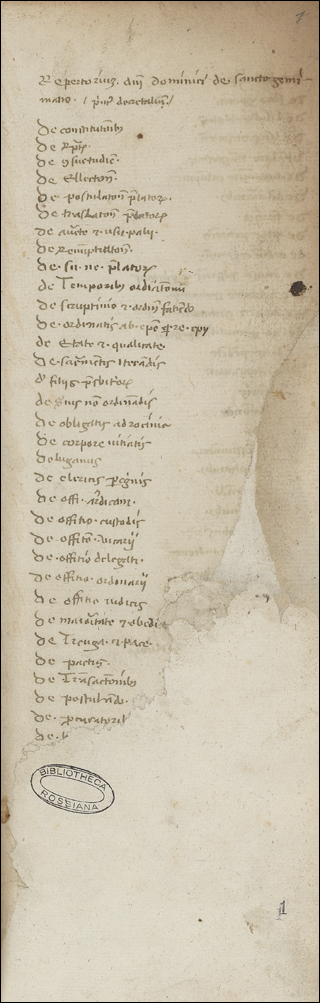 1
Repertoriuz. dni dominici de sancto gemi-
niano. / prim' decretaliuz /
De constitutionib
de Rpt.
de 9suetudie.
de Ellection.
de postulaton prelator.
de traslaton prelator
de aucte & usu palij.
de Renuptiation.
de. su. ne. prelator
de Temporib ordinationu
de scruptinio & ordin faciedo
de. ordinatis ab. epo q re. epy
de Etate & qualitate
de sacrmentis iterandis
d' filiis presbiteror
de Suis non ordinandis
de obligatis ad rocinia
de corpore vitiatis
de bigamis
de clericis pegnis
de offi. archidiacon.
de offitio. custodis
de offito. vicarij
de. offitio delegati.
de offitio. ordinarij
de offitio iudicis
de maioritate & obedi
de Treuga. et pace.
de pactis.
de Transactionib
de postulando.
de. procuratorib
de. b
BIBLIOTHECA
ROSSIANA
1